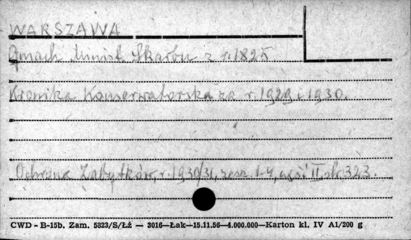 WARSZAWA
Gmach Minist. Skarbu z r. 182
Kronika Konserwatorska za r. 1929 i 1930.
Ochrona Zabytków, r. 1930/31, zesz. 1-4, część II, str. 323.
CWD - B-15b. Zam. 5823/S/Łż — 3016—Łak—15.11.56—4.000.000—Karton kl. IV A1/200 g